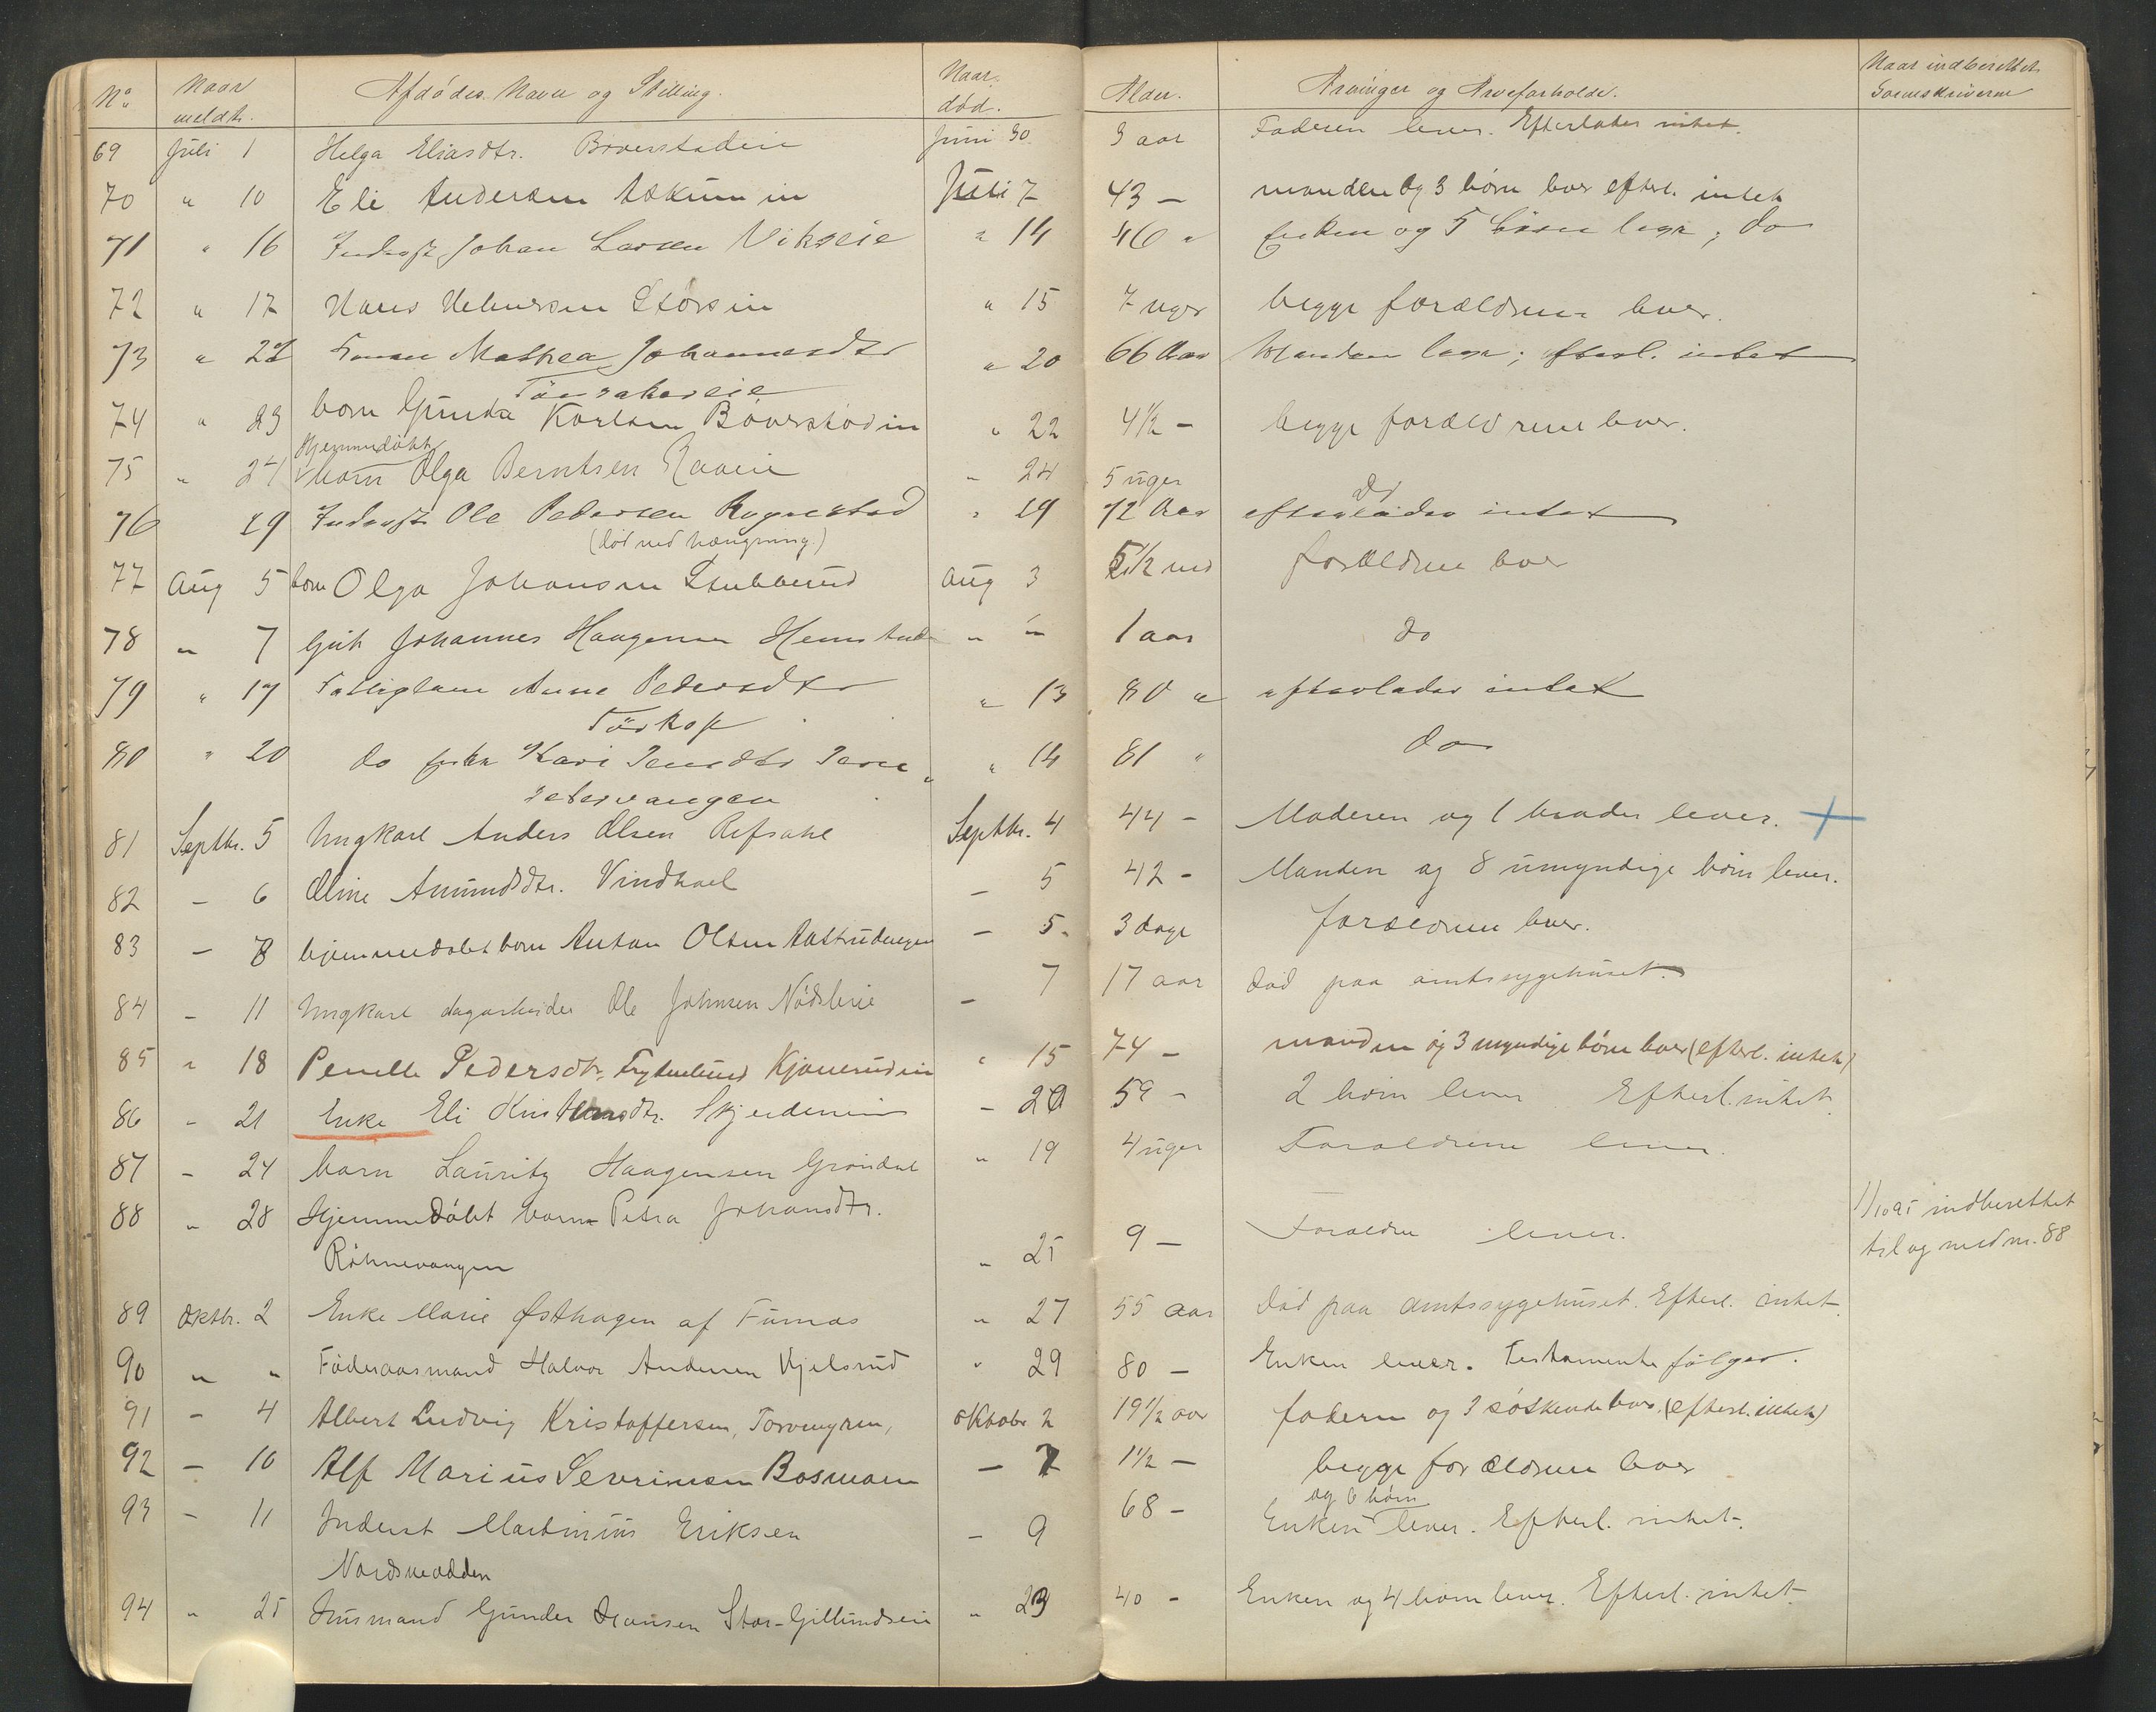 No. Naar meldt. Afdødes Navn og Stilling. Naar død. Alder. Arvinger og Arveforholde. Naar indberettet Sorenskriveren
69 Juli 1 Helga Eliasdtr. Bøverstadeie Juni 30. 3 aar Faderen lever. Efterlader intet.
70 " 10 Eli Andersen Juli 7 43 – manden og 3 børn lever efterl. intet
71 " 16 Inderst Johan Larsen Vikseie " 14 46 " Enken og 5 børn lever; do
72 " 17 Hans " 15 7 uger begge forældrene lever.
73 " 22 Konen Mathea Johannesdtr " 20 66 Aar Manden lever; efterl. intet
74 " 23 barn Gunda Karlsen Bøverstadeie " 22 4½ – begge forældrene lever.
Hjemmedøbt
75 " 24 barn Olga Berntsen " 24 5 uger
do
76 29 Inderst Ole Pedersen Rognstad " 29 72 Aar efterlader intet
(død ved hængning.)
77 Aug 5 barn Olga Johansen Stubberud Aug 3 5½ md forældrene lever
78 " 7 Gut Johannes Haagensen Hemstad " " 1 aar do
79 " 17 Fattiglem Anne Pedersdtr " 13 80 " efterlader intet
80 " 20 do enken Kari Jensdtr " 14 81 " do
Sætervangen
81 Septbr. 5 Ungkarl Anders Olsen Refsahl Septbr. 4 44 – Moderen og 1 broder lever. +
82 – 6 Oline Amundsdtr. – 5 42 – Manden og 8 umyndige børn lever.
83 – 8 hjemmedøbt barn Anton Olsen – 5. 3 dage forældrene lever.
84 – 11 Ungkarl dagarbeider Ole Johnsen – 7 17 aar død paa amtssygehuset.
85 " 18 Pernille Pedersdtr. Frydenlund " 15 74 – manden og 3 myndige børn lever (efterl. intet)
86 – 21 Enke Eli – 20 59 – 2 børn lever Efterl. intet.
87 – 24 barn Lauritz Haagensen Grøndal " 19 4 uger Forældrene lever.
88 " 28 Hjemmedøbt barn Petra Johansdtr.
Røhnevangen " 25 9 – Forældre lever. 1/10 95 indberettet
til og med nr. 88
89 Oktbr. 2 Enke Marie Østhagen af Furnæs " 27 55 aar død paa amtssygehuset. Efterl. intet.
90 " " Føderaadsmand Halvor Andersen Kjelsrud " 29 80 – Enken lever. Testamente følger.
91 – 4 Albert Ludvig Kristoffersen, Torvmyren, oktobr 2 19½ aar faderen og 3 søskende lever. (efterl. intet)
92 – 10 Alf Marius Severinsen Bosmoen – 7 1½ – begge forældrene lever
og 6 børn
93 – 11 Inderst Martinius Eriksen – 9 68 – Enken lever. Efterl. intet.
94 " 25 Husmand Gunder Hansen Stor-Gillundseie " 23 40 – Enken og 4 børn lever. Efterl. intet.